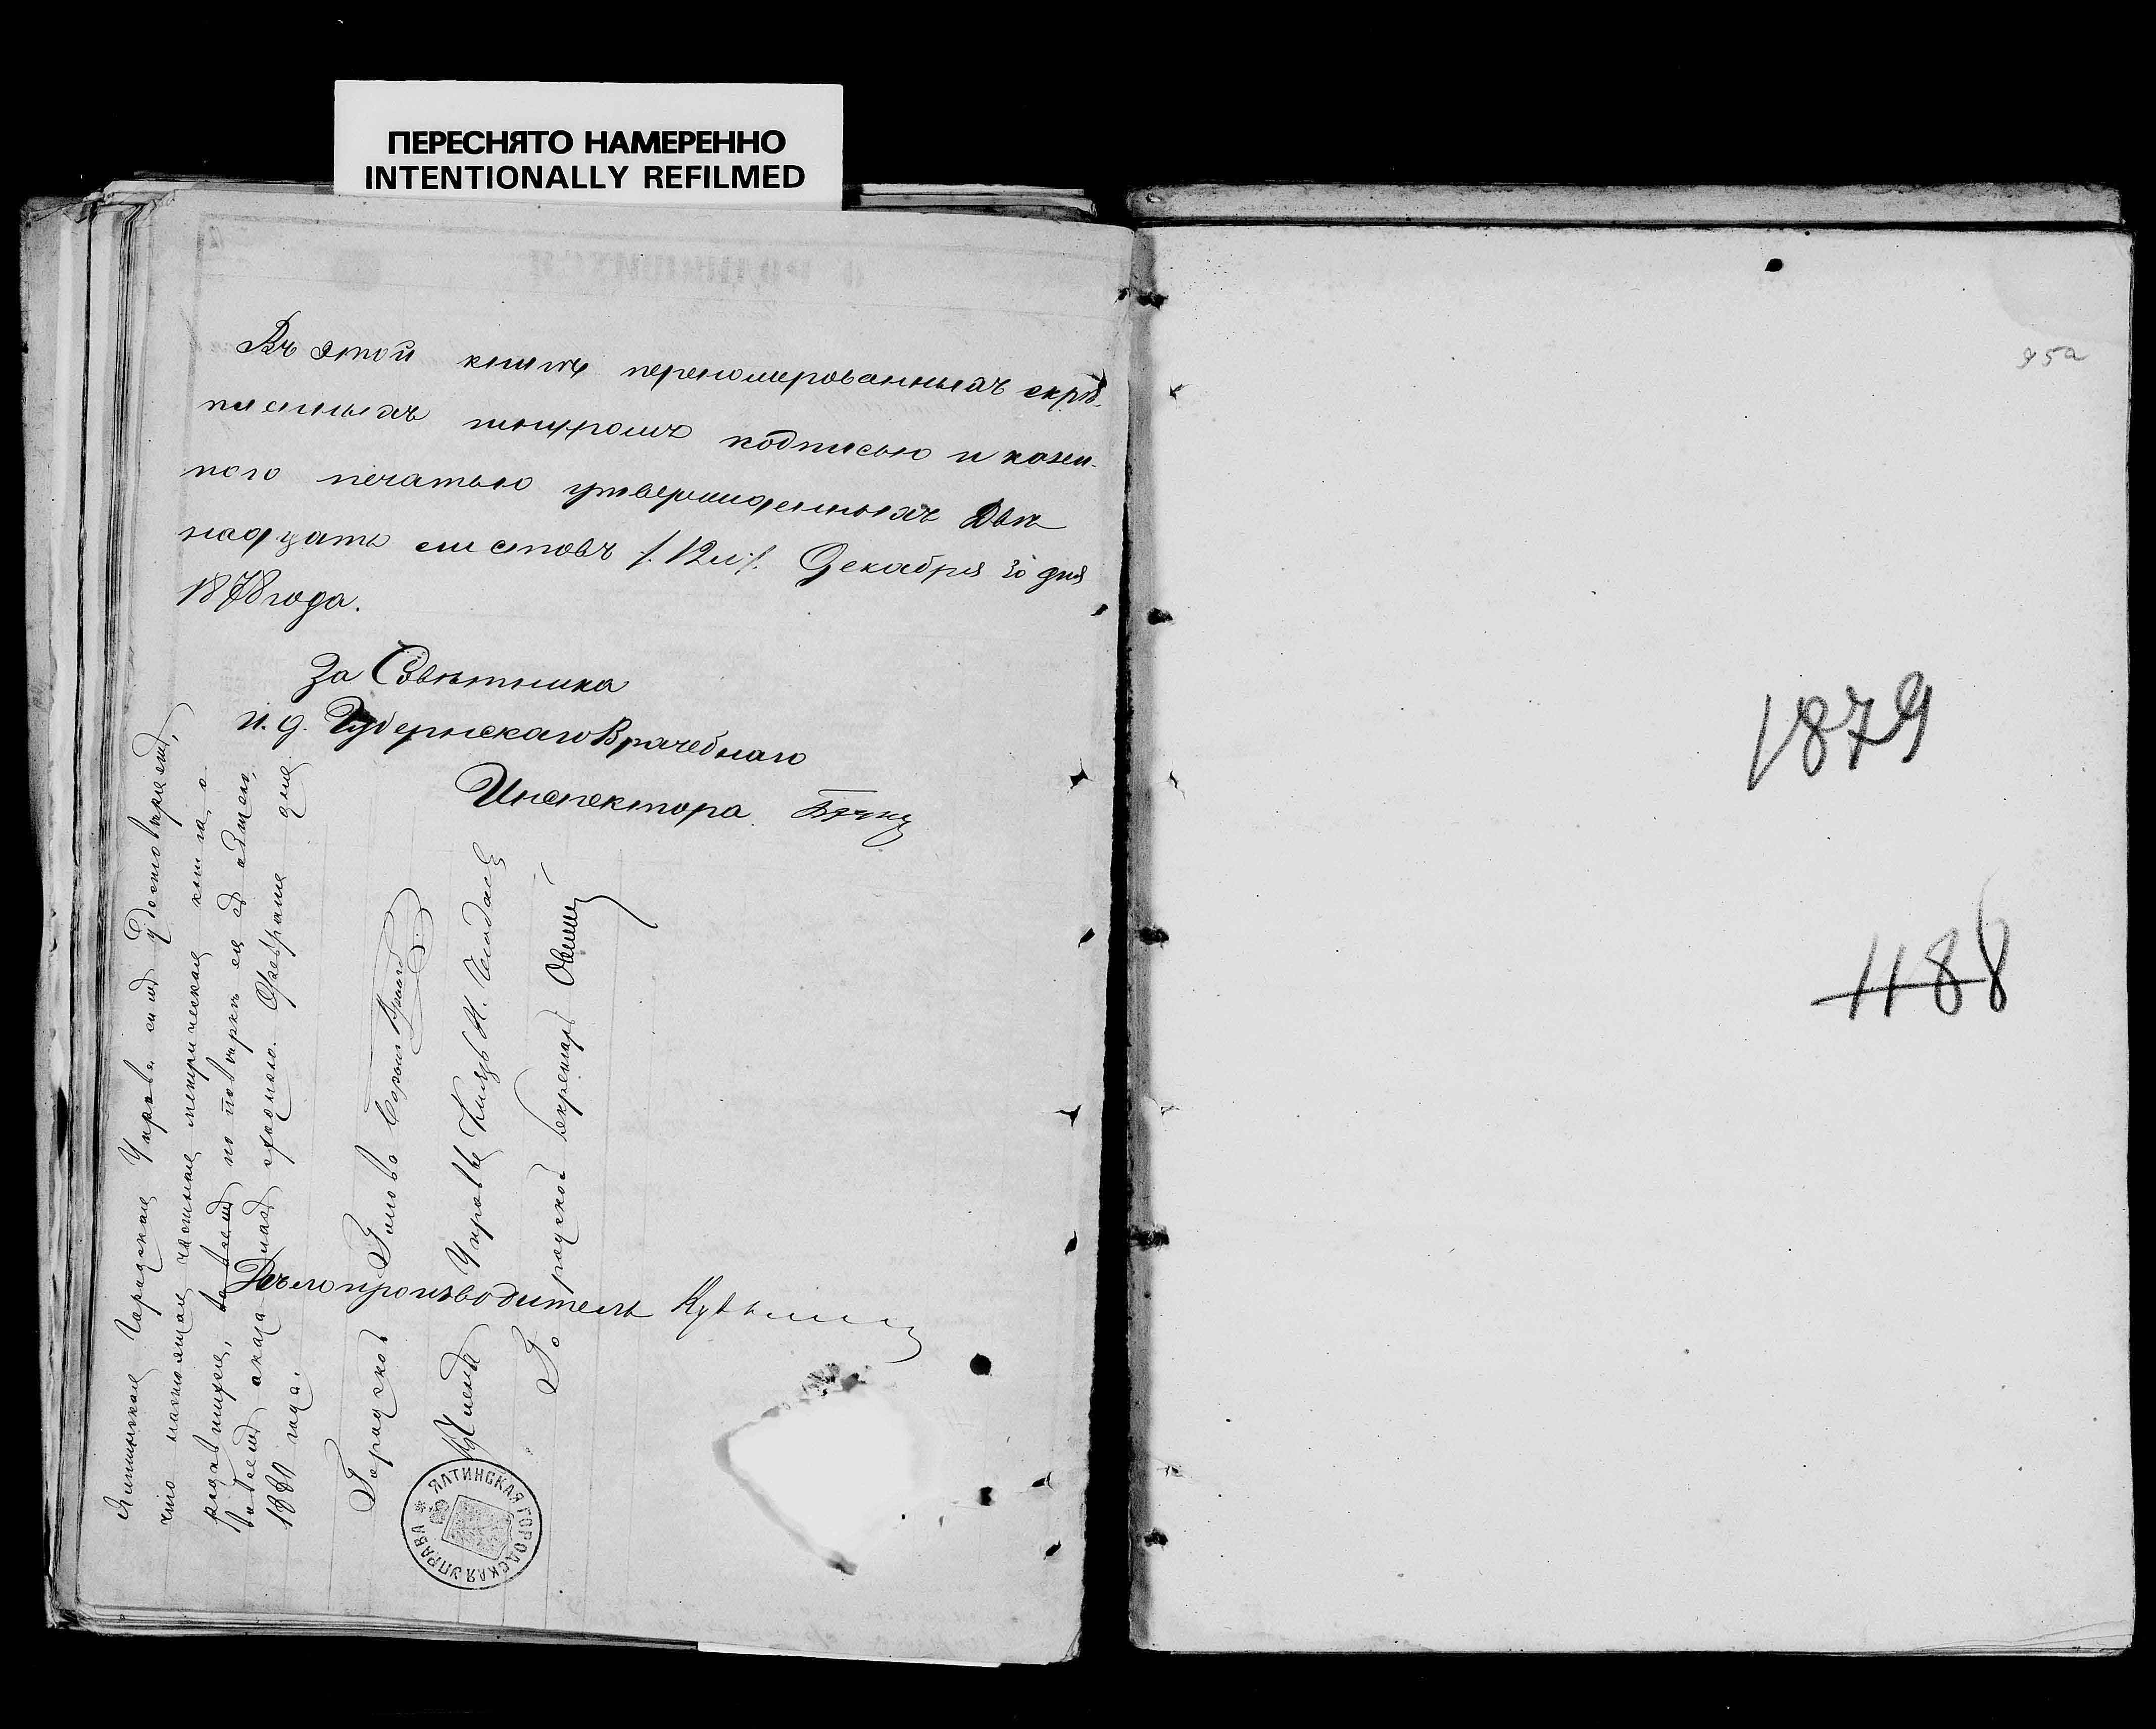 ПЕРЕСНЯТО НАМЕРЕННО
INTENTIONALLY REFILMED
Въ этой книгѣ перенумерованныхъ скрѣ-
пленныхъ шнуромъ подписью и казен-
ною печатью утвержденныхъ Двѣ
надцать листовъ /.12 л./. Декабря 30 дня
1878 года.
За Совѣтника
и. д. Губернскаго Врачебнаго
Инспектора
Ялтинская Городская Управа симъ удостовѣряетъ,
что настоящая частная метрическая книга о
родившихся, по повѣркѣ ея съ
оказалась сходною. Февраля дня
1880 года.
Городской Голова
Членъ Управы Князь
Городской Секретарь
Дѣлопроизводитель
ЯЛТИНСКАЯ ГОРОДСКАЯ УПРАВА
95а
1879
1188